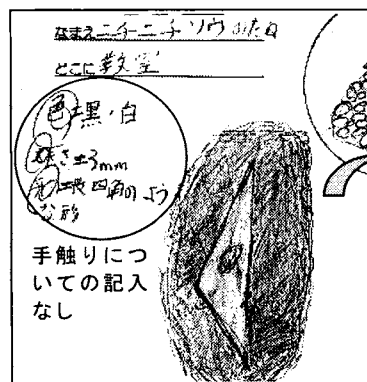 なまえニチニチソウのたね
どこに教室
色 黒・白
さ 3mm
形 四角のよう
な形
手触りにつ
いての記入
なし